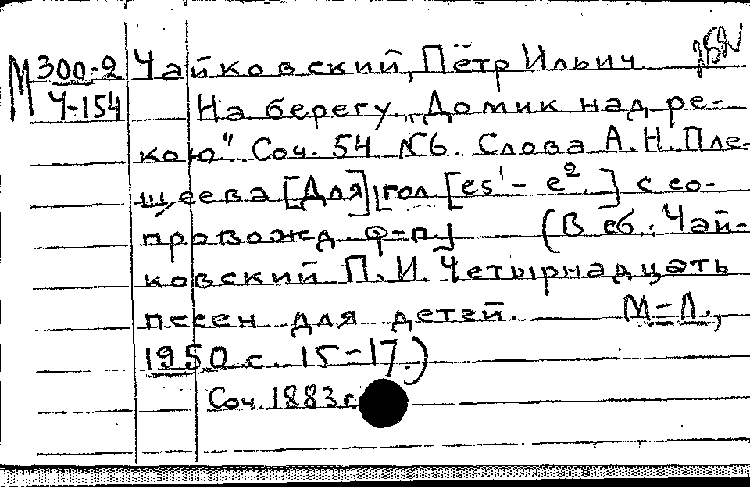 М 300-2 Чайковский, Пётр Ильич
Ч-154 На берегу. „Домик над ре-
кою" Соч. 54 №6. Слова А.Н. Пле-
щеева [Для] гол [es¹ - e².] с со-
провожд ф-п] (В сб.: Чай-
ковский П.И. Четырнадцать
песен для детей. М-Л.,
1950 с. 15-17.)
Соч. 1883 г.